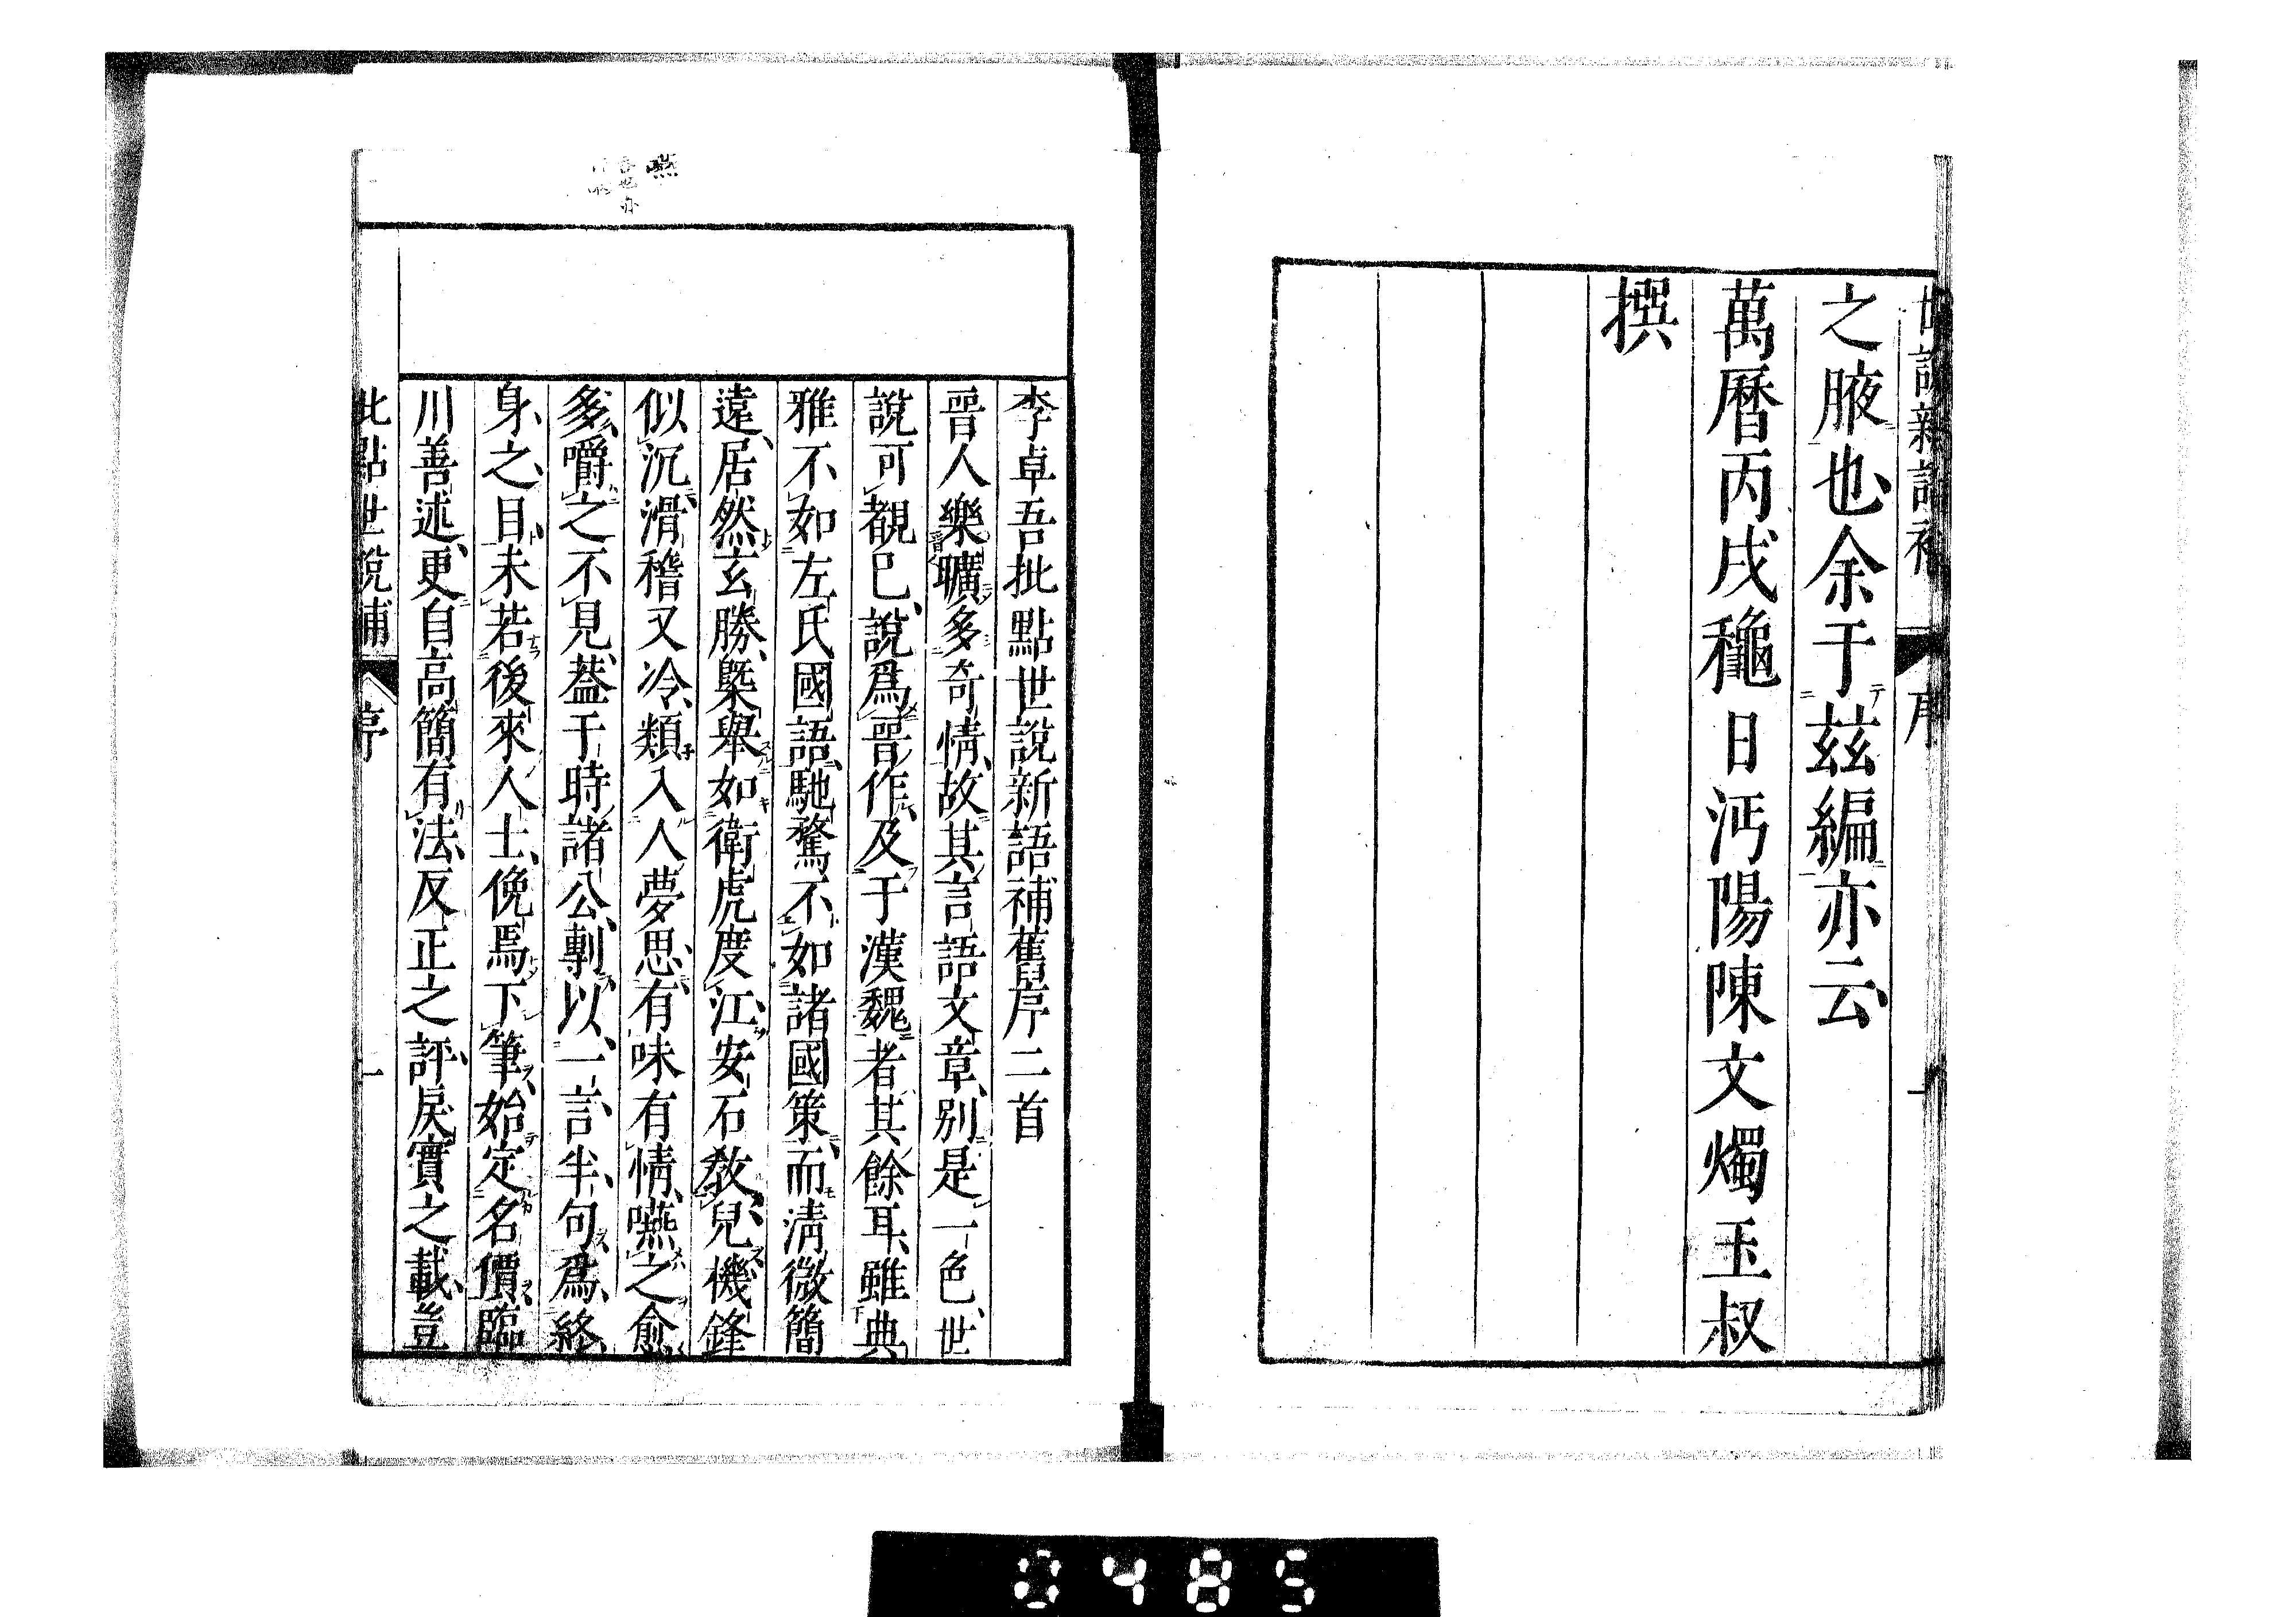 之腋也余于茲編亦云
萬曆丙戌龝日沔陽陳文燭玉叔
撰
序
李卓吾批點世說新語補舊序二首
晉人樂曠多奇情故其言語文章別是一色世
說可覩已說爲晉作及于漢魏者其餘耳雖典
雅不如左氏國語馳騖不如諸國策而淸微簡
遠居然玄勝槩舉如衛虎度江安石敎兒機鋒
似沉滑稽又冷類入人夢思有味有情嚥之愈
多嚼之不見葢于時諸公剸以一言半句爲終
身之目未若後來人士俛焉下筆始定名價臨
川善述更自高簡有法反正之評戾實之載豈
批點世說補
序
一
嚥
0485